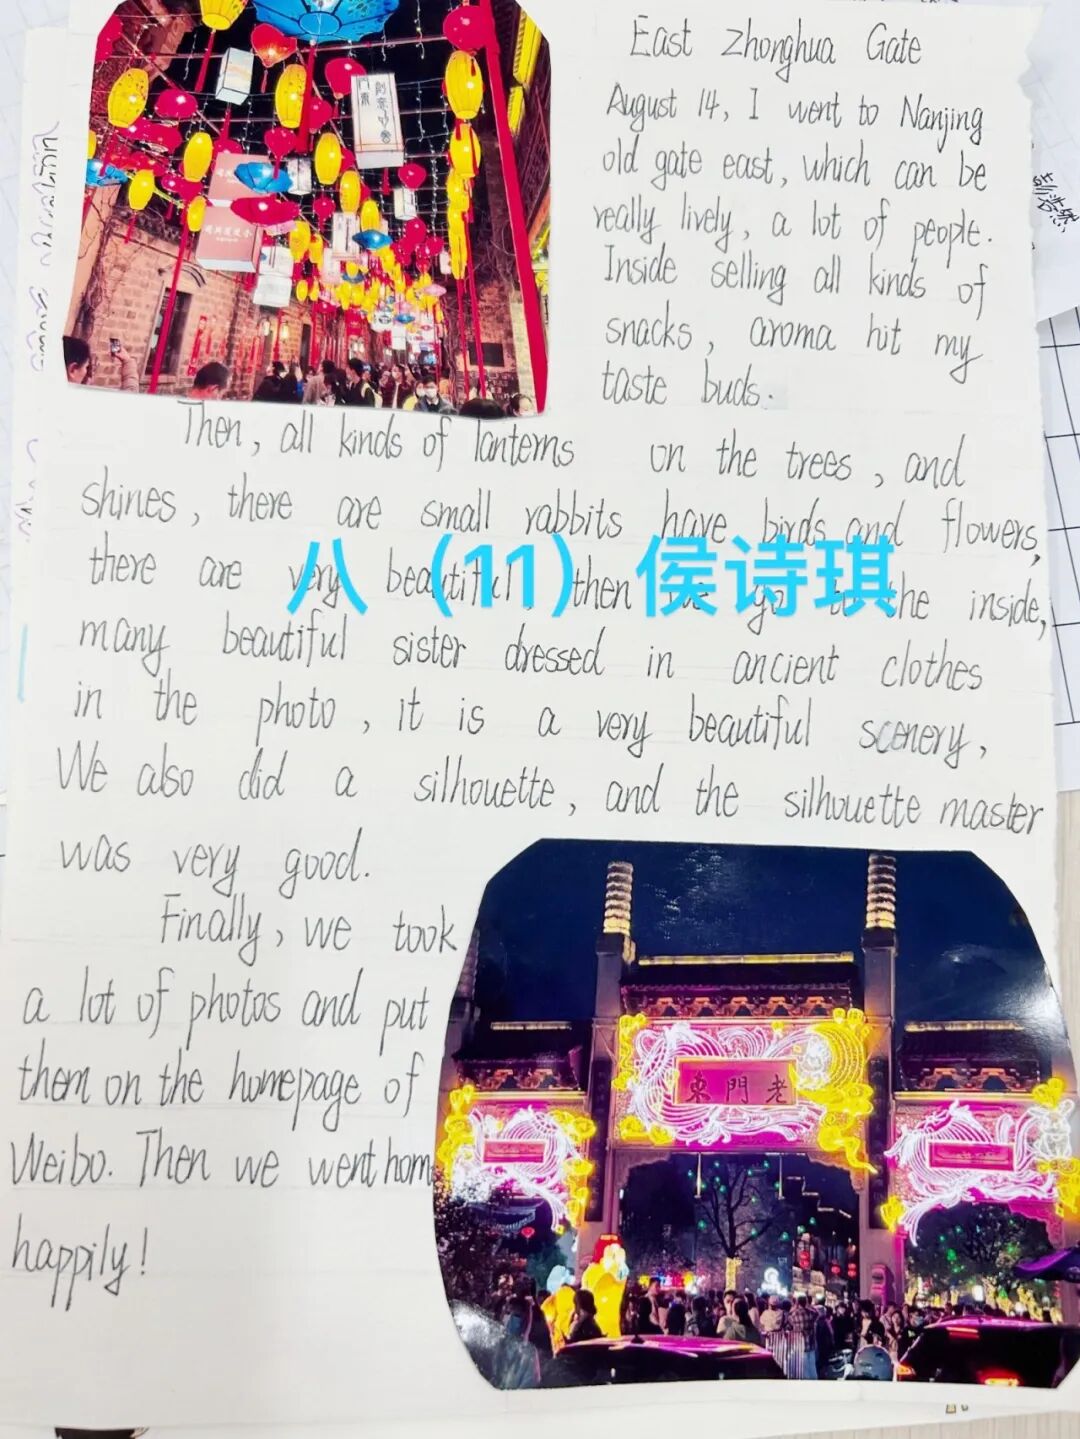 East Zhonghua Gate
August 14, I went to Nanjing
old gate east, which can be
really lively, a lot of people.
Inside selling all kinds of
snacks, aroma hit my
taste buds.
Then, all kinds of lanterns on the trees, and
shines, there are small rabbits have birds and flowers,
there are very beautiful, then we go to the inside,
八（11）侯诗琪
many beautiful sister dressed in ancient clothes
in the photo, it is a very beautiful scenery,
We also did a silhouette, and the silhouette master
was very good.
Finally, we took
a lot of photos and put
them on the homepage of
Weibo. Then we went hom
happily!
東門老